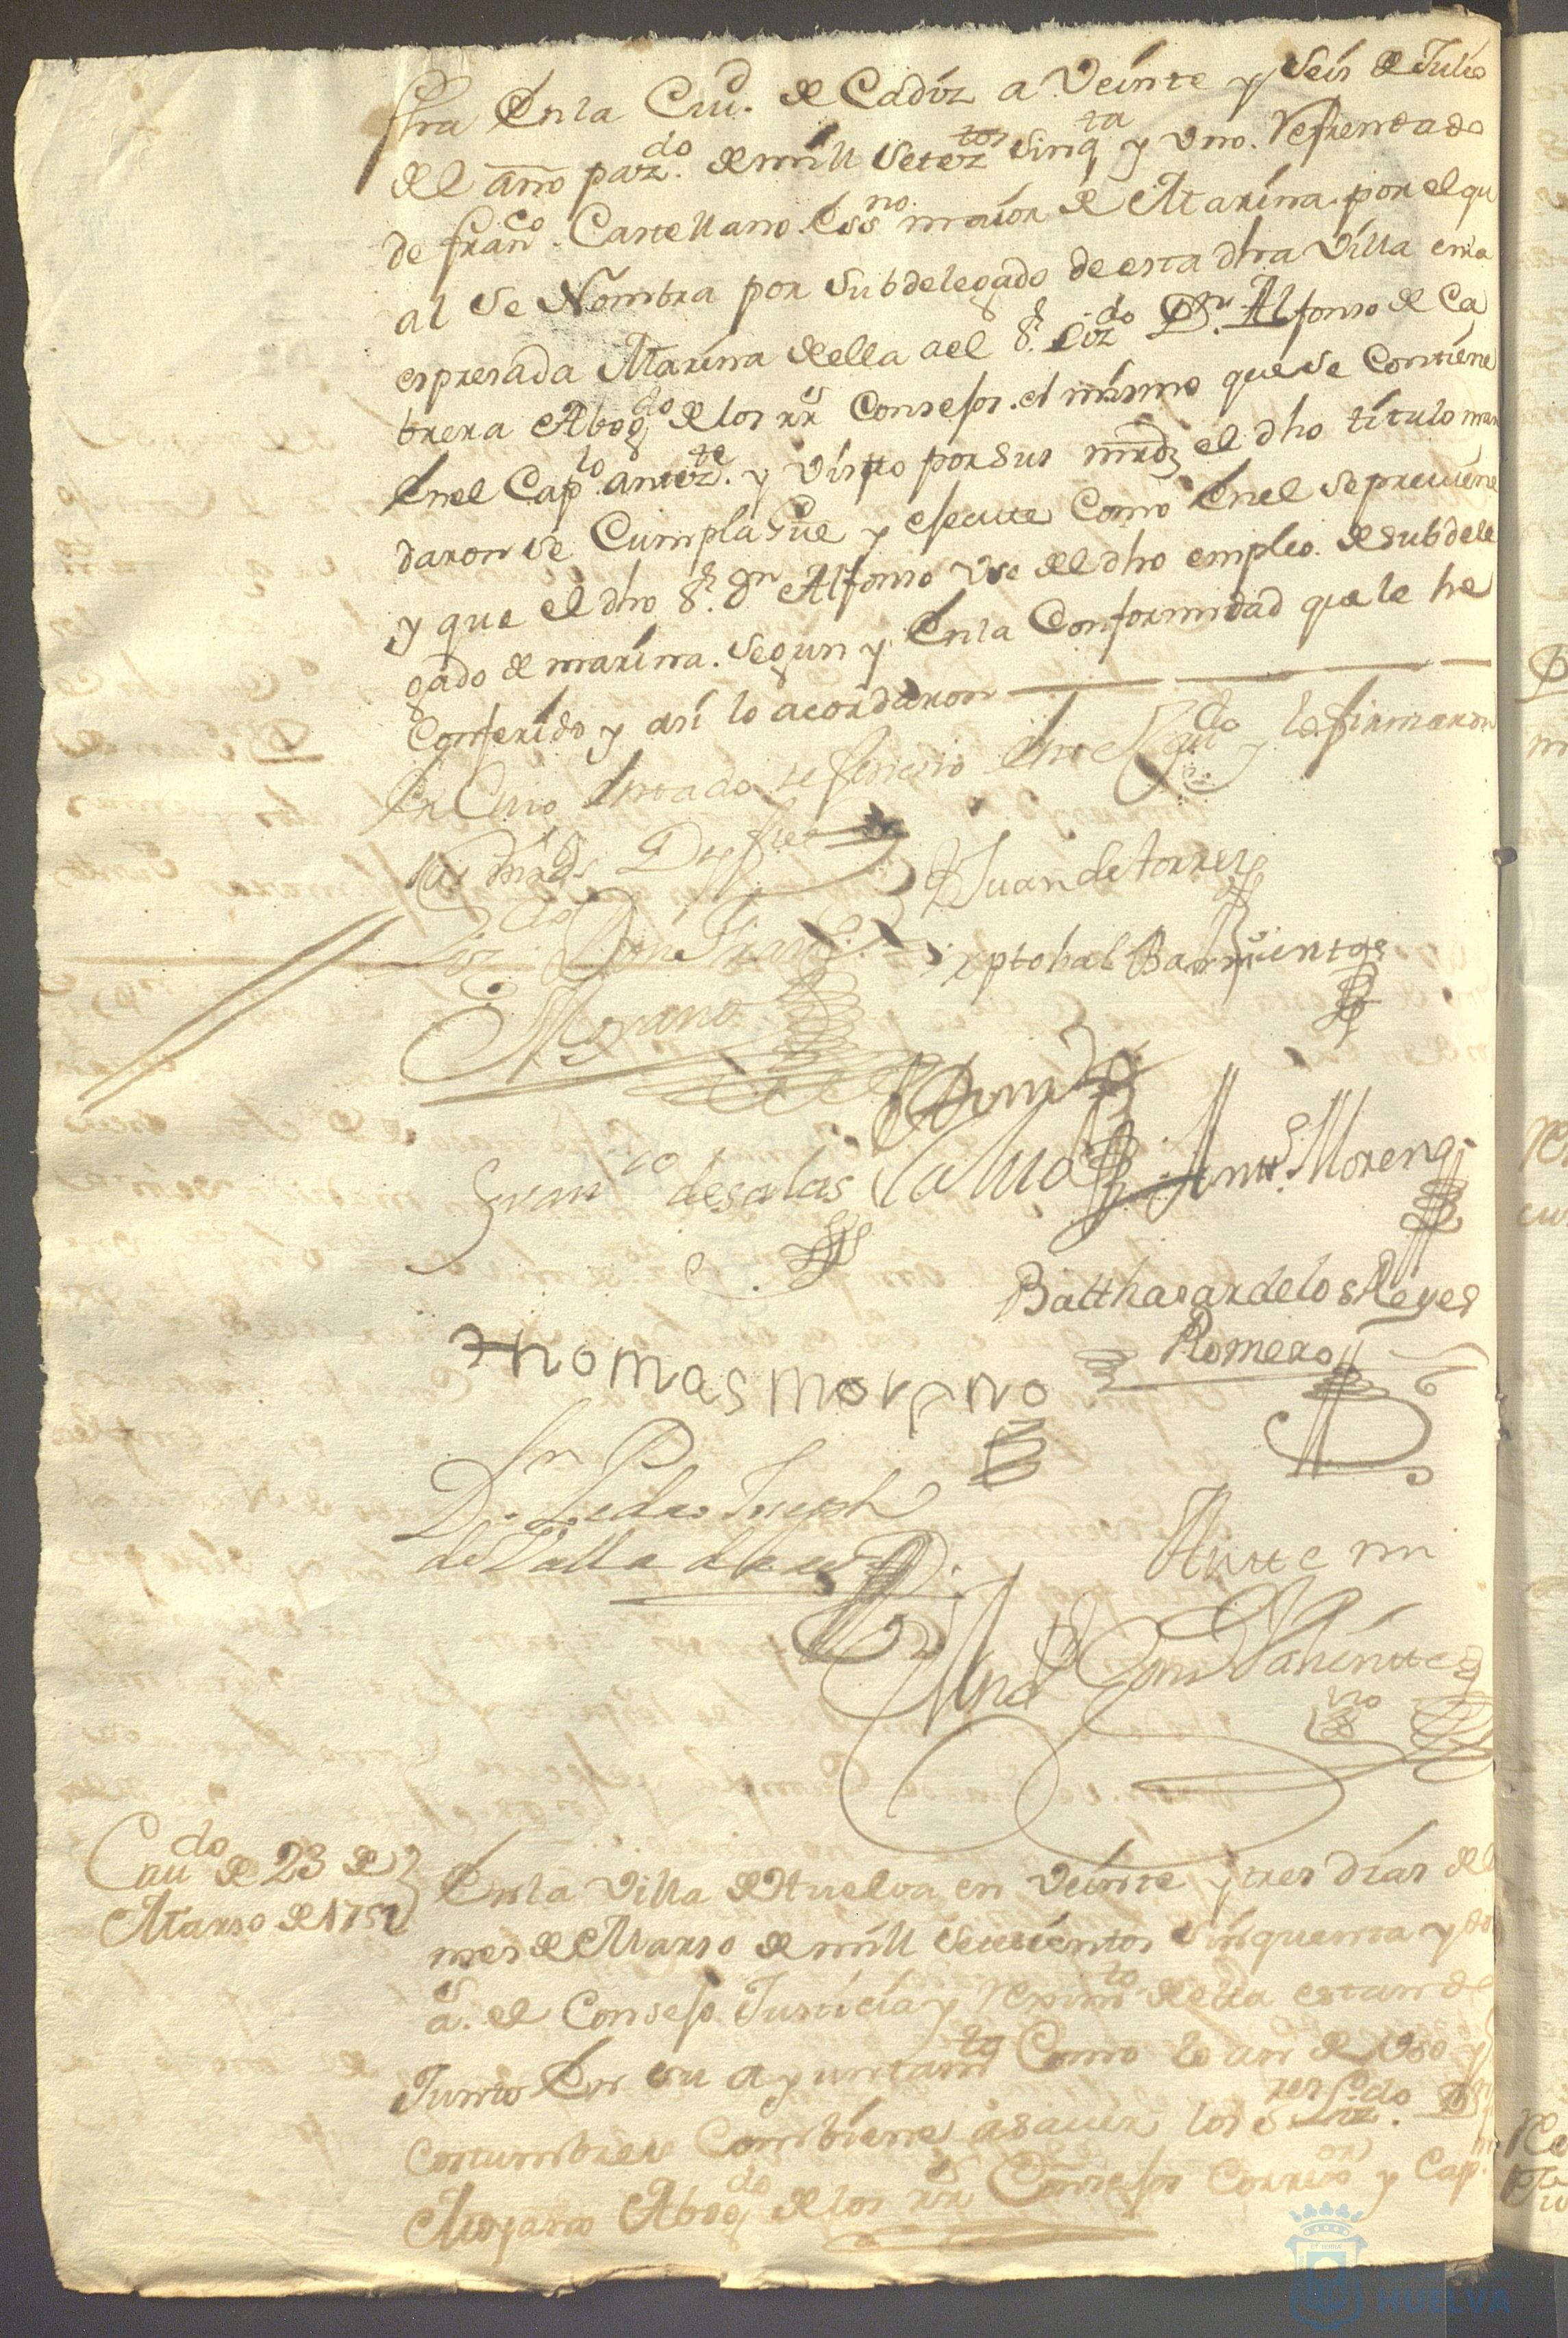 fha En la Ciud. de Cadiz a Veinte y Seis de Julio
del año paz.do de mill Setez.tos Sinq.ta y Uno. Refrentado
de fran.co Castellano Ess.no maior de Marina por el qu
al se Nombra por Subdelegado de esta dha Villa en la
espresada Marina de ella a el S.r Liz.do D.n Alfonso de Ca
brera Abog.do de los R.s Consejos. el mismo que se Contiene
En el Cap.lo antez.te y Visto por Sus mrds el dho título man
daron se Cumpla Gue y execute Como En el se previene
y que el dho S.r D.n Alfonso Use del dho empleo de Subdele
gado de marina. Segun y En la Conformidad que le he
Conferido y así lo acordaron
En Cuio Estado se fenecio y lo firmaron
Sus mrds Doy fee
Juan de torres
Liz.do Don Fran.co
Morano
xptobal Barrientos
Fran.co de salas
Ant.o Moreno
Balthasar de los Reyes
Romero
thomas morano
D.n Pedro Joseph
de Valladares
Antte mi
Cau.do de 23 de
Marso de 1752
En la Villa de Huelva en Veinte y tres días del
mes de Marso de mill Setecientos Sinquenta y do
s a.s el Consejo Justicia y reximto de ella estando
Junto En su ayuntam.to Como lo an de Uso y
Costumbre Combiene asaver los S.res Liz.do D.n
Moyano Abog.do de los R.s Consejos Correx.or y Cap.n
HUELVA